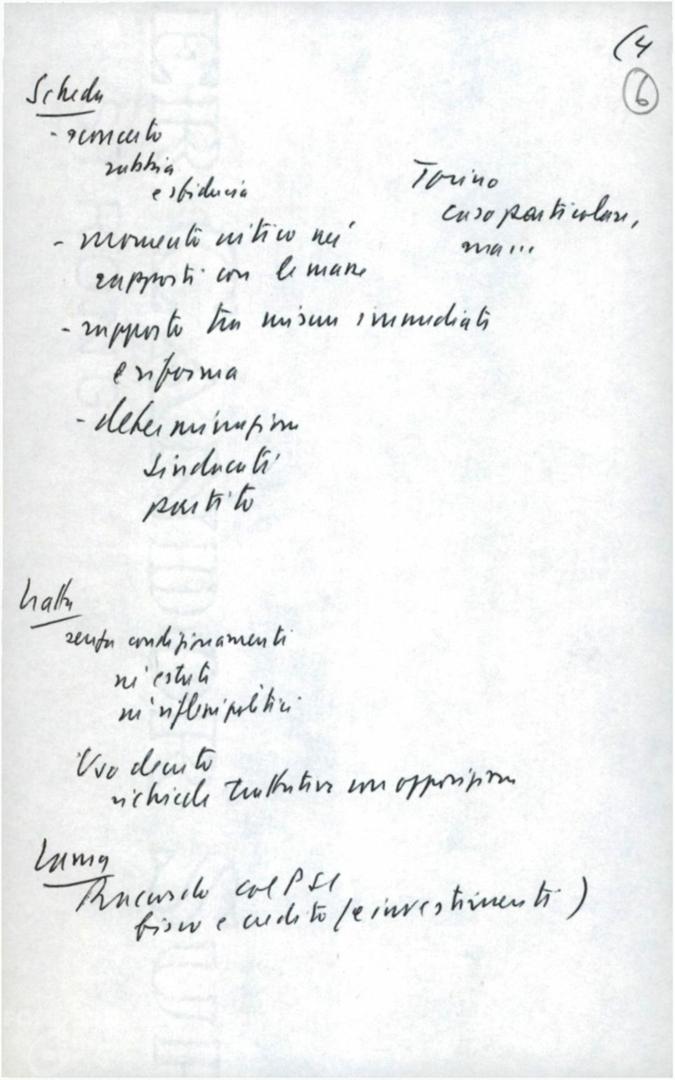 (4
6
Scheda
- sconcerto
rabbia
e sfiducia
Torino
caso particolare,
ma...
- momento critico nei
rapporti con le masse
- rapporto tra misure immediate
e riforma
- determinazione
sindacati
partito
Natta
senza condizionamenti
né estuti
né riflessi politici
Uso decreto
richiede trattativa con opposizione
Lama
Raccordo col PSI
fisco e credito (e investimenti)